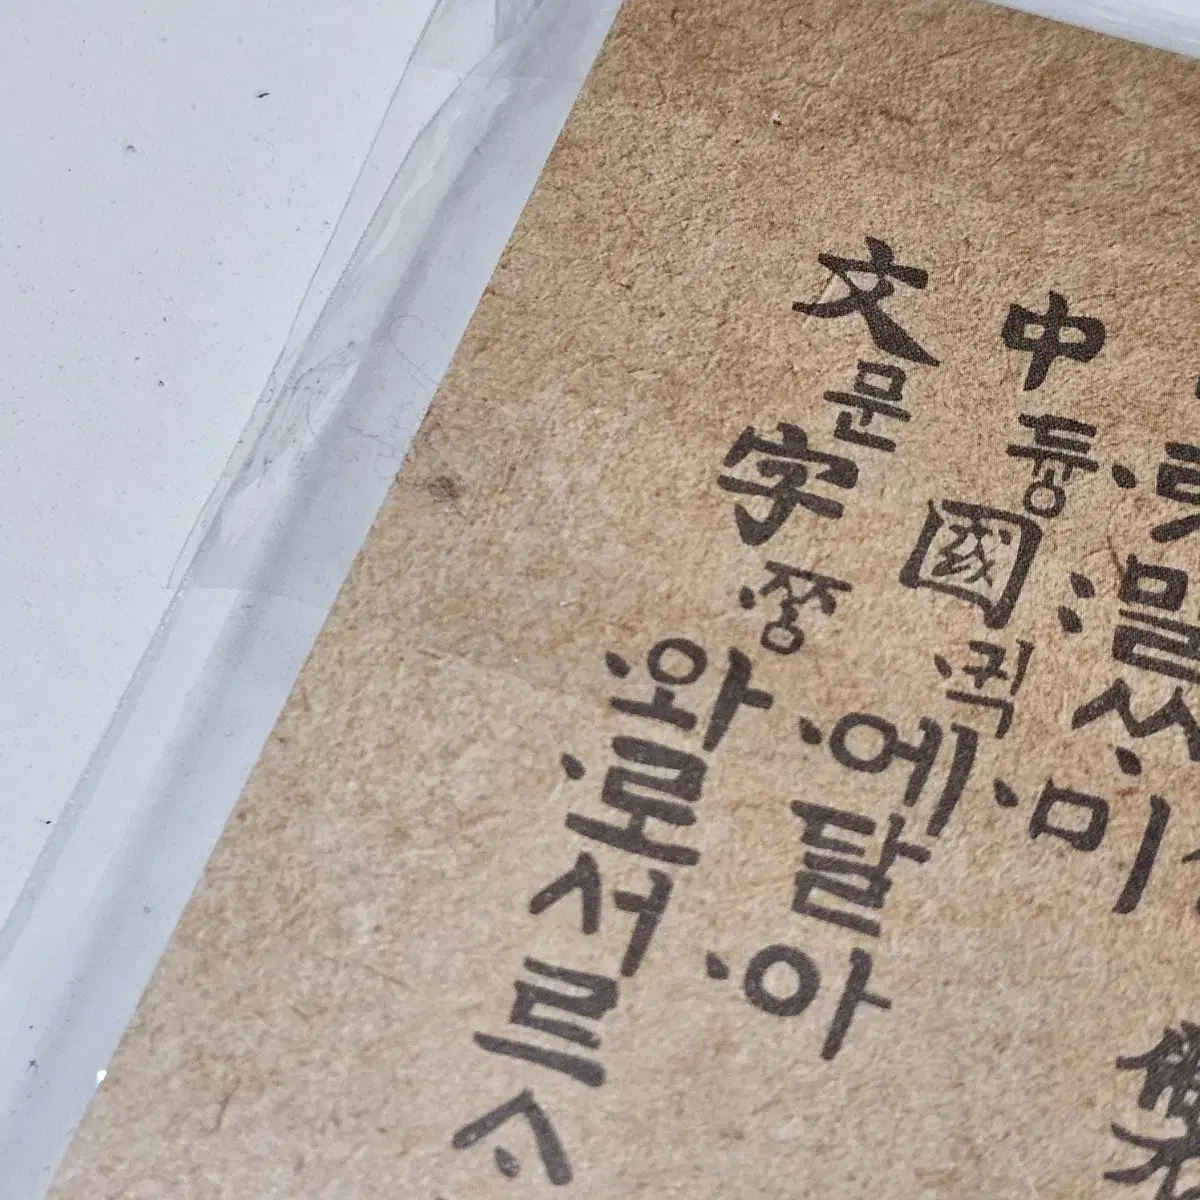 ·랏:말ᄊᆞ·미
中듕國·귁·에달·아
文문字·ᄍᆞᆼ·와·로서르ᄉᆞ